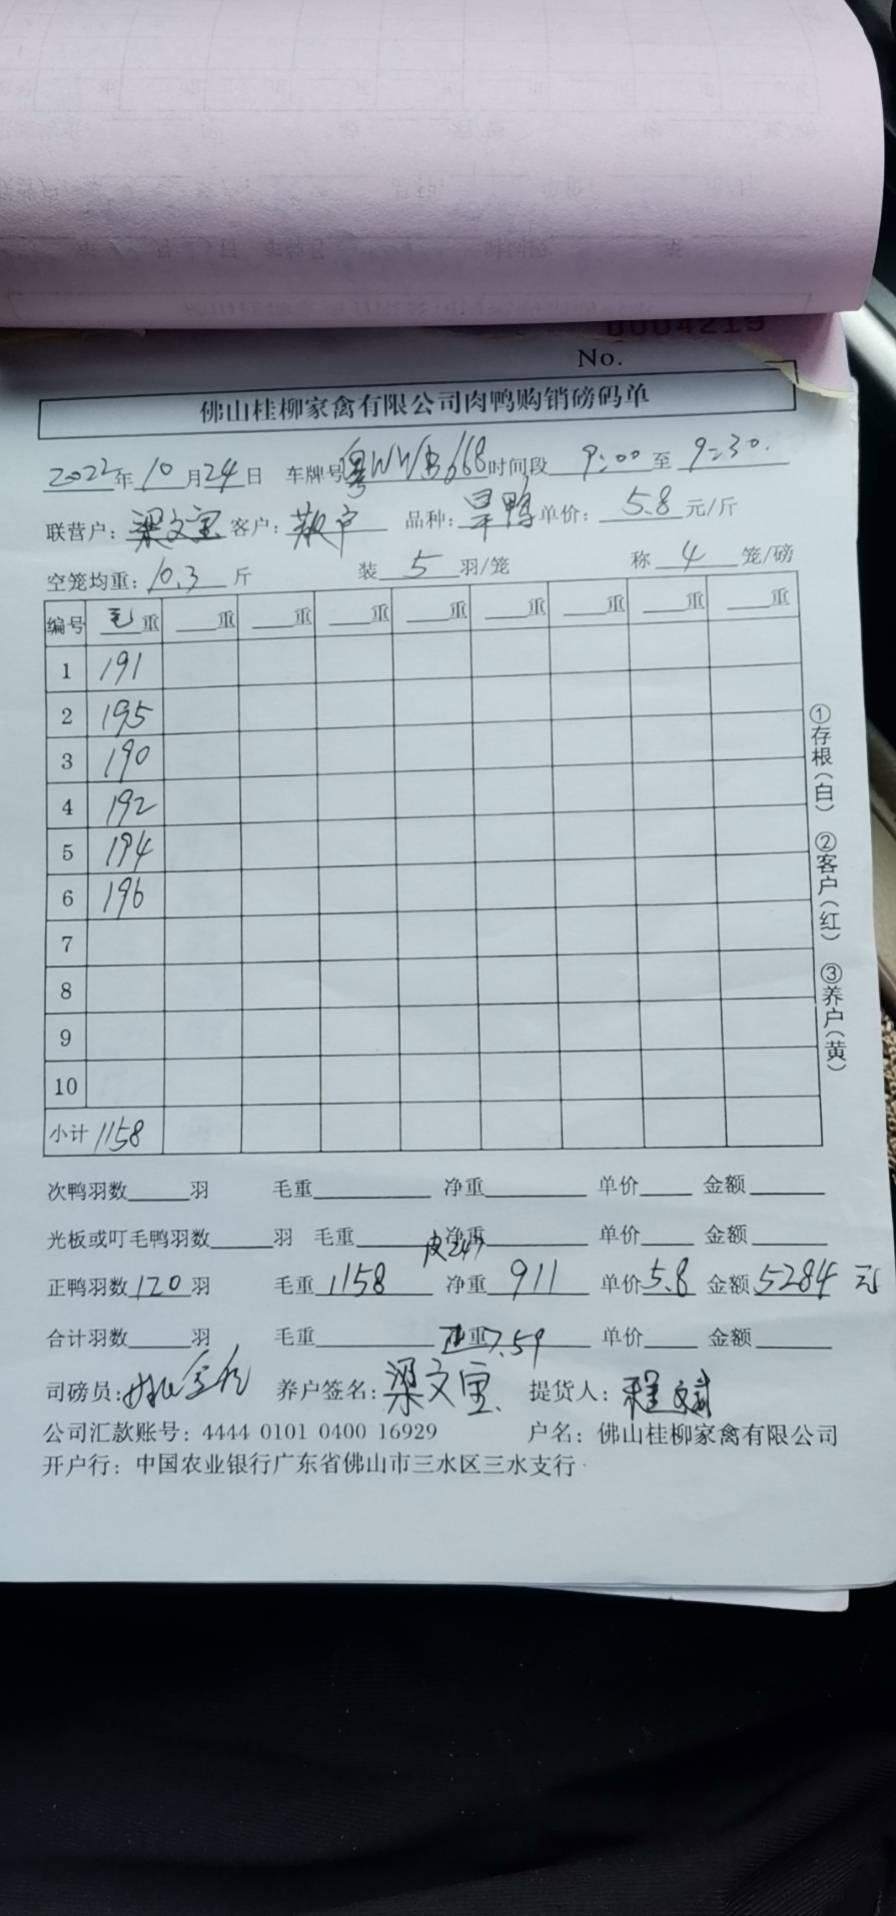 0004219
No.
佛山桂柳家禽有限公司肉鸭购销磅码单
2022年10月24日 车牌号 时间段 9:00 至 9:30.
联营户：梁文宝 客户：散户 品种：旱鸭 单价：5.8元/斤
空笼均重：10.3斤 装5羽/笼 称4笼/磅
编号 毛重 重 重 重 重 重 重 重 重
1 191
2 195
3 190
4 192
5 194
6 196
7
8
9
10
小计 1158
①存根（白） ②客户（红） ③养户（黄）
次鸭羽数 羽 毛重 净重 单价 金额
光板或叮毛鸭羽数 羽 毛重 净重 单价 金额
皮247
正鸭羽数120羽 毛重1158 净重911 单价5.8 金额5284元
合计羽数 羽 毛重 重7.59 单价 金额
司磅员： 养户签名：梁文宝 提货人：程斌
公司汇款账号：4444 0101 0400 16929 户名：佛山桂柳家禽有限公司
开户行：中国农业银行广东省佛山市三水区三水支行